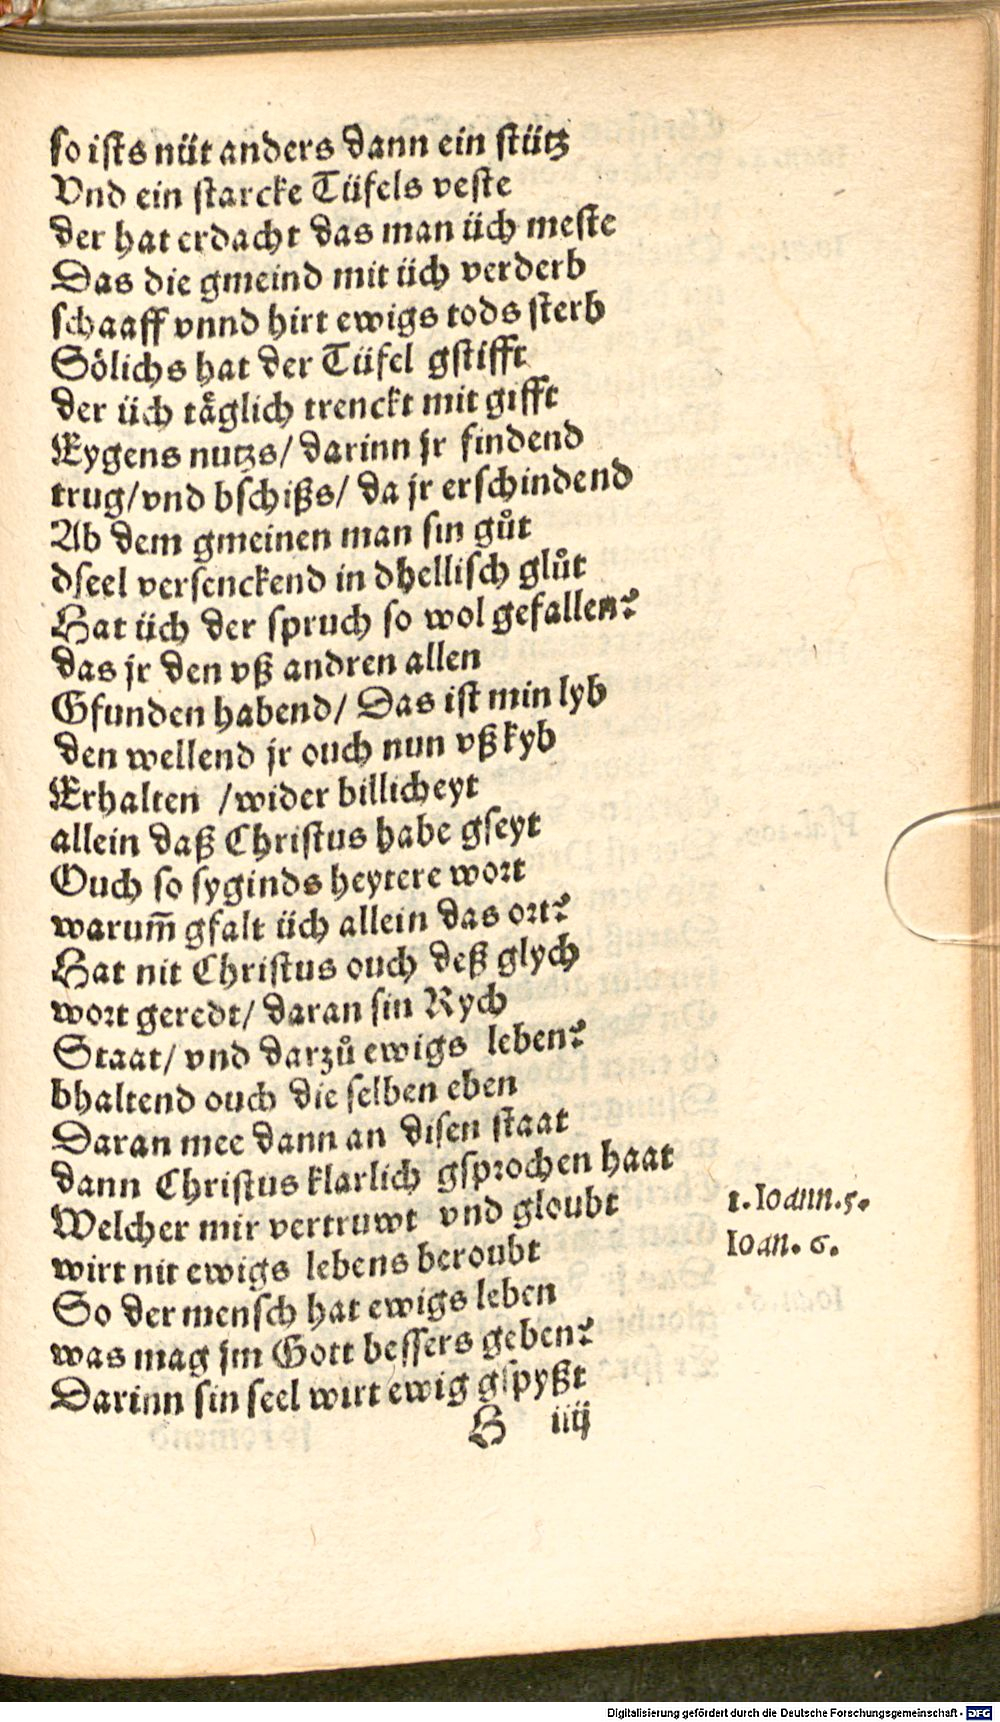 so ists nüt anders dann ein stütz
Vnd ein starcke Tüfels veste
der hat erdacht das man üch meste
Das die gmeind mit üch verderb
schaaff vnnd hirt ewigs tods sterb
Sölichs hat der Tüfel gstifft
der üch täglich trenckt mit gifft
Eygens nutzs/ darinn jr findend
trug/ vnd bschißs/ da jr erschindend
Ab dem gmeinen man sin gůt
dseel versenckend in dhellisch glůt
Hat üch der spruch so wol gefallen?
das jr den vß andren allen
Gfunden habend/ Das ist min lyb
den wellend jr ouch nun vß kyb
Erhalten /wider billicheyt
allein daß Christus habe gseyt
Ouch so syginds heytere wort
warum̃ gfalt üch allein das ort?
Hat nit Christus ouch deß glych
wort geredt/ daran sin Rych
Staat/ vnd darzů ewigs leben?
bhaltend ouch die selben eben
Daran mee dann an disen staat
dann Christus klarlich gsprochen haat
Welcher mir vertruwt vnd gloubt
1. Ioann. 5.
Ioan. 6.
wirt nit ewigs lebens beroubt
So der mensch hat ewigs leben
was mag jm Gott bessers geben?
Darinn sin seel wirt ewig gspyßt
H iiij
Digitalisierung gefördert durch die Deutsche Forschungsgemeinschaft - DFG